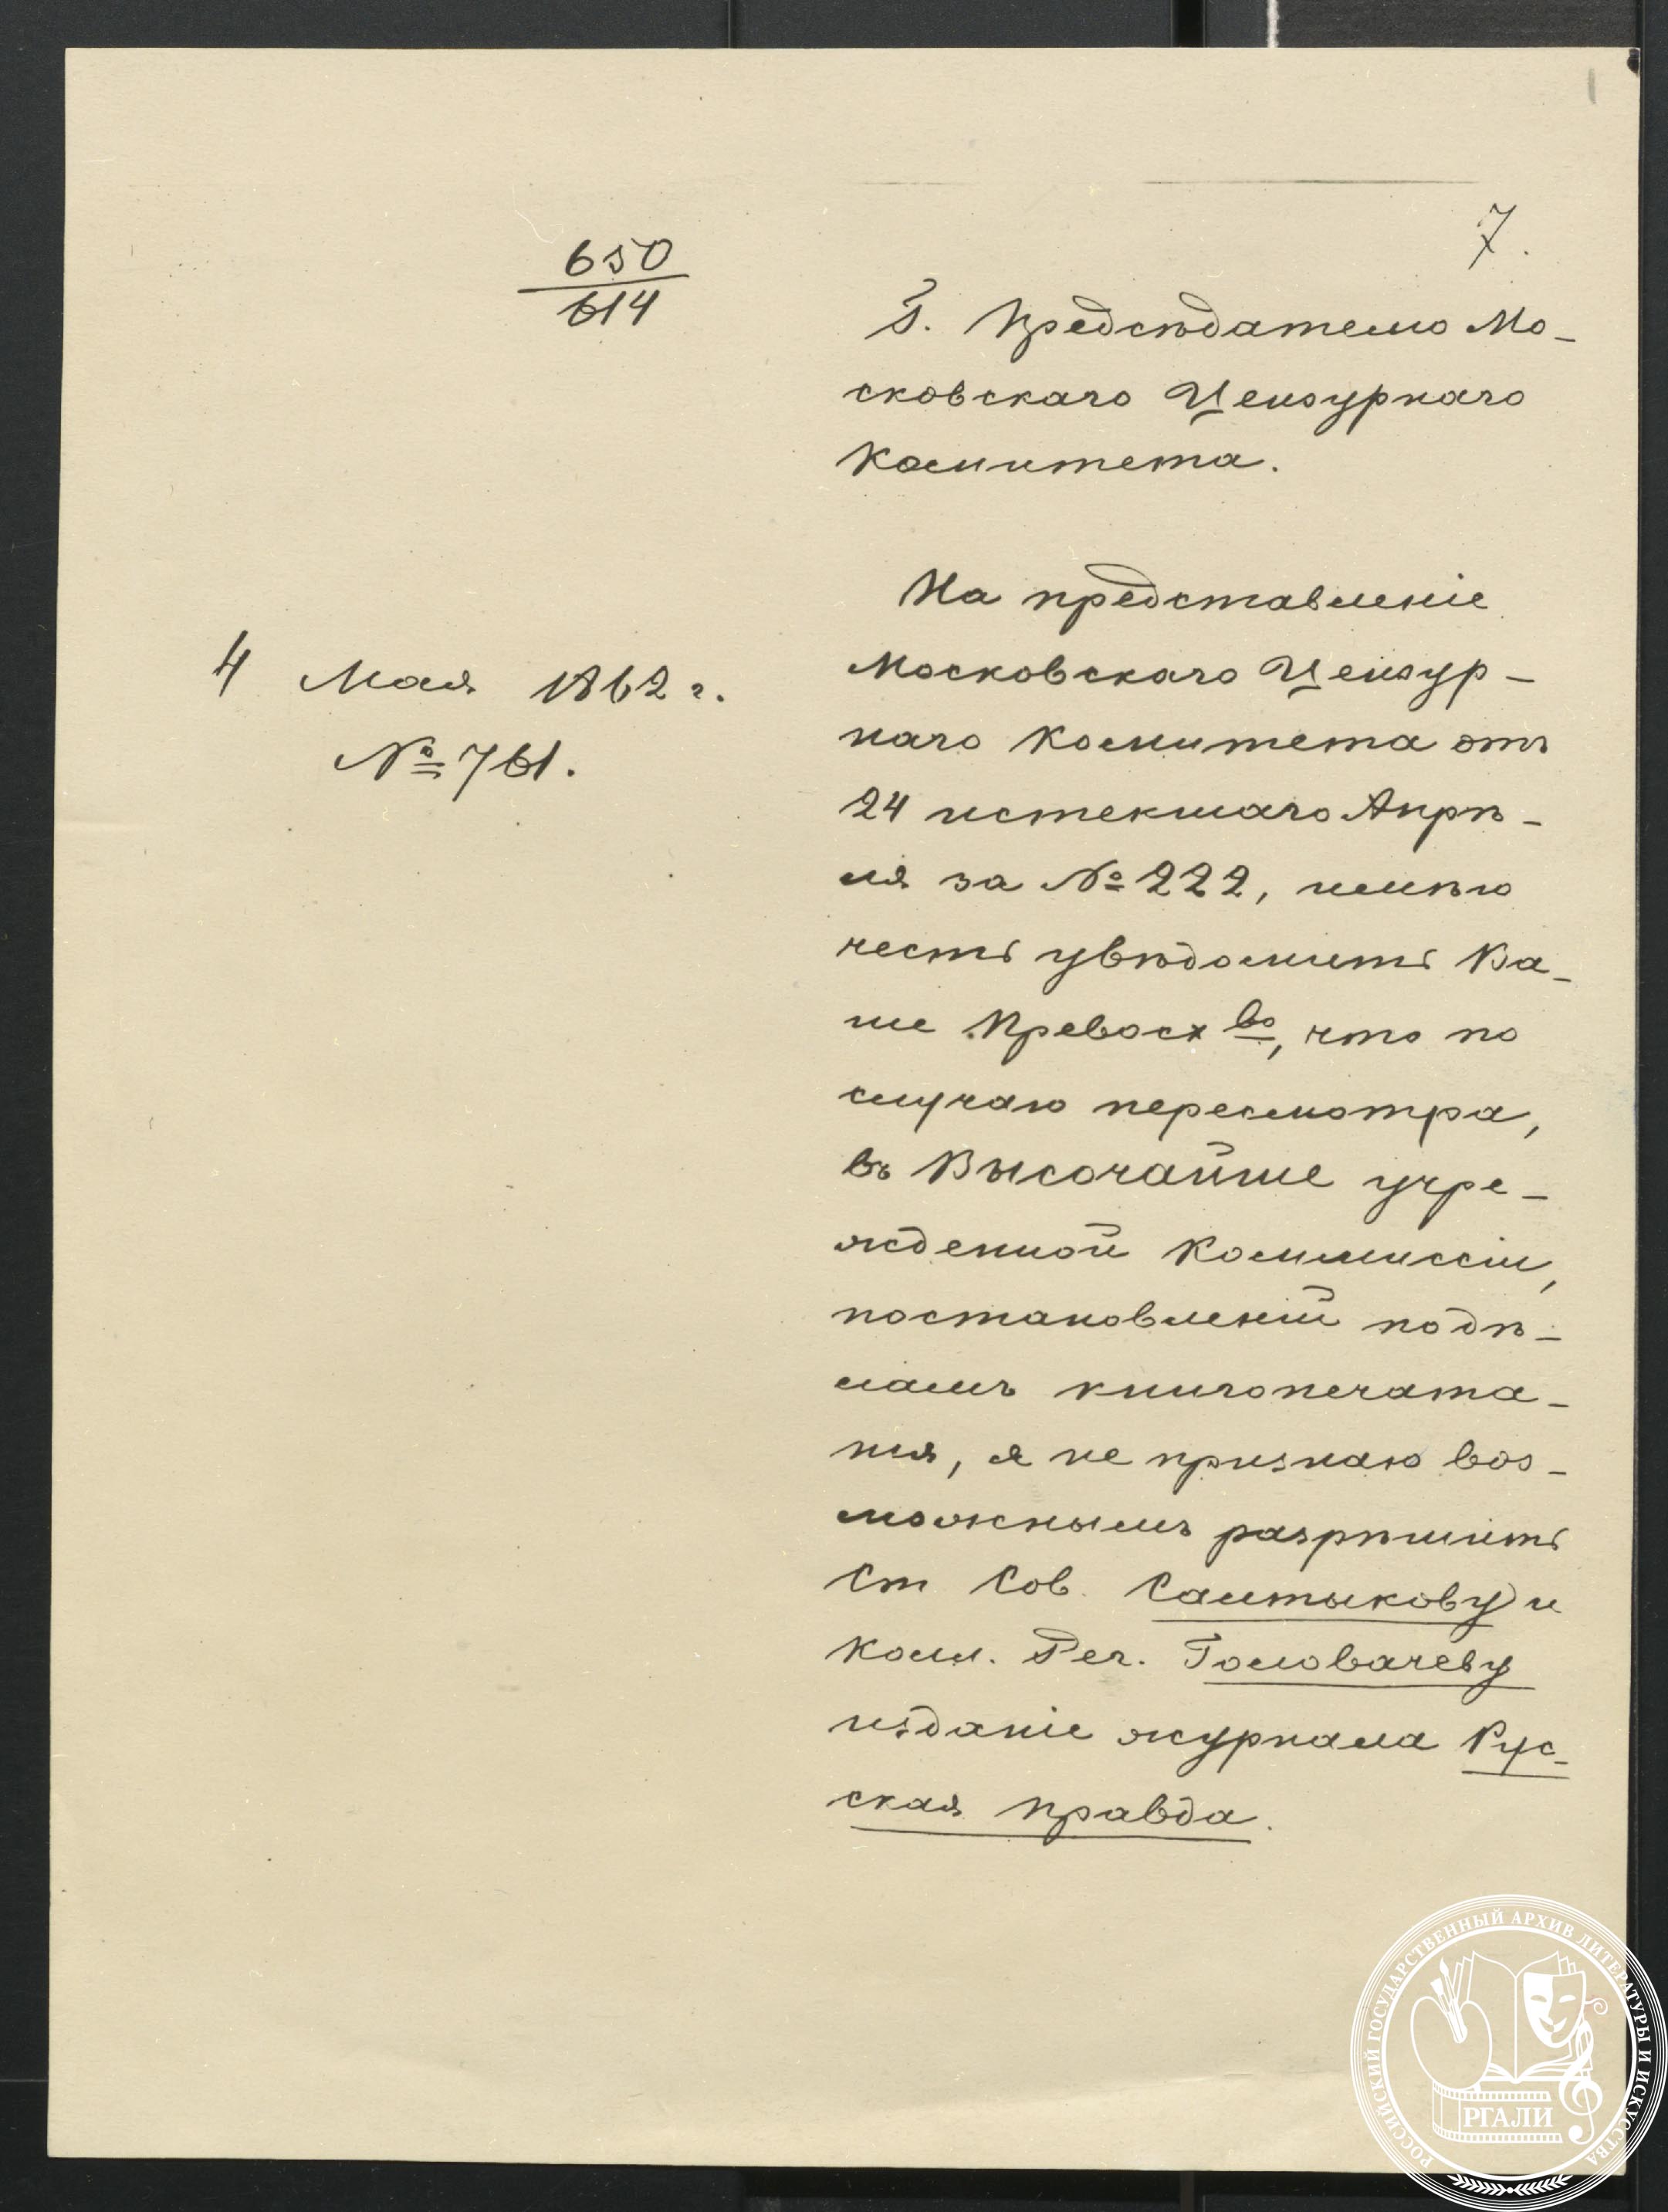 7.
650
614
Г. Предсѣдателю Мо-
сковскаго Цензурнаго
Комитета.
4 Мая 1862 г.
№ 761.
На представленіе
Московскаго Цензур-
наго Комитета отъ
24 истекшаго Апрѣ-
ля за № 222, имѣю
честь увѣдомить Ва-
ше Превосх во, что по
случаю пересмотра,
въ Высочайше учре-
жденной Коммиссіи,
постановленій по дѣ-
ламъ книгопечата-
нія, я не признаю воз-
можнымъ разрѣшить
Ст Сов. Салтыкову и
Колл. Рег. Головачеву
изданіе журнала Рус-
ская правда.
РОССИЙСКИЙ ГОСУДАРСТВЕННЫЙ АРХИВ ЛИТЕРАТУРЫ И ИСКУССТВА
РГАЛИ